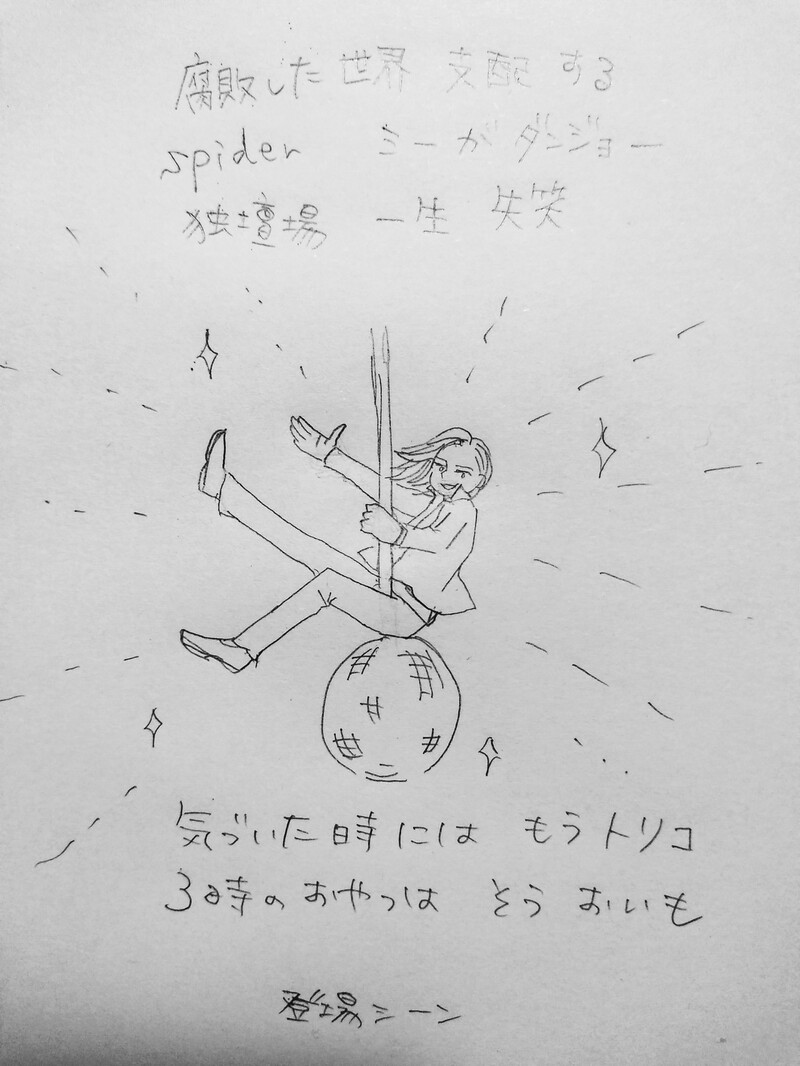 腐敗した世界 支配する
spider ミーがダンジョー
独壇場 一生 失笑
気づいた時には もうトリコ
3時のおやつは そう おいも
登場シーン